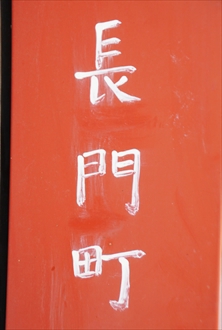 長門町